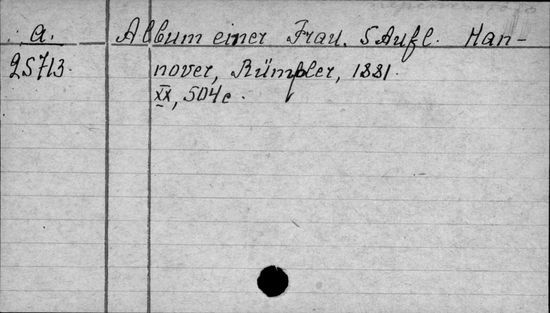 a. Album einer Frau. 5 Aufl. Han-
25713. nover, Rümpler, 1881.
XX, 504 c.